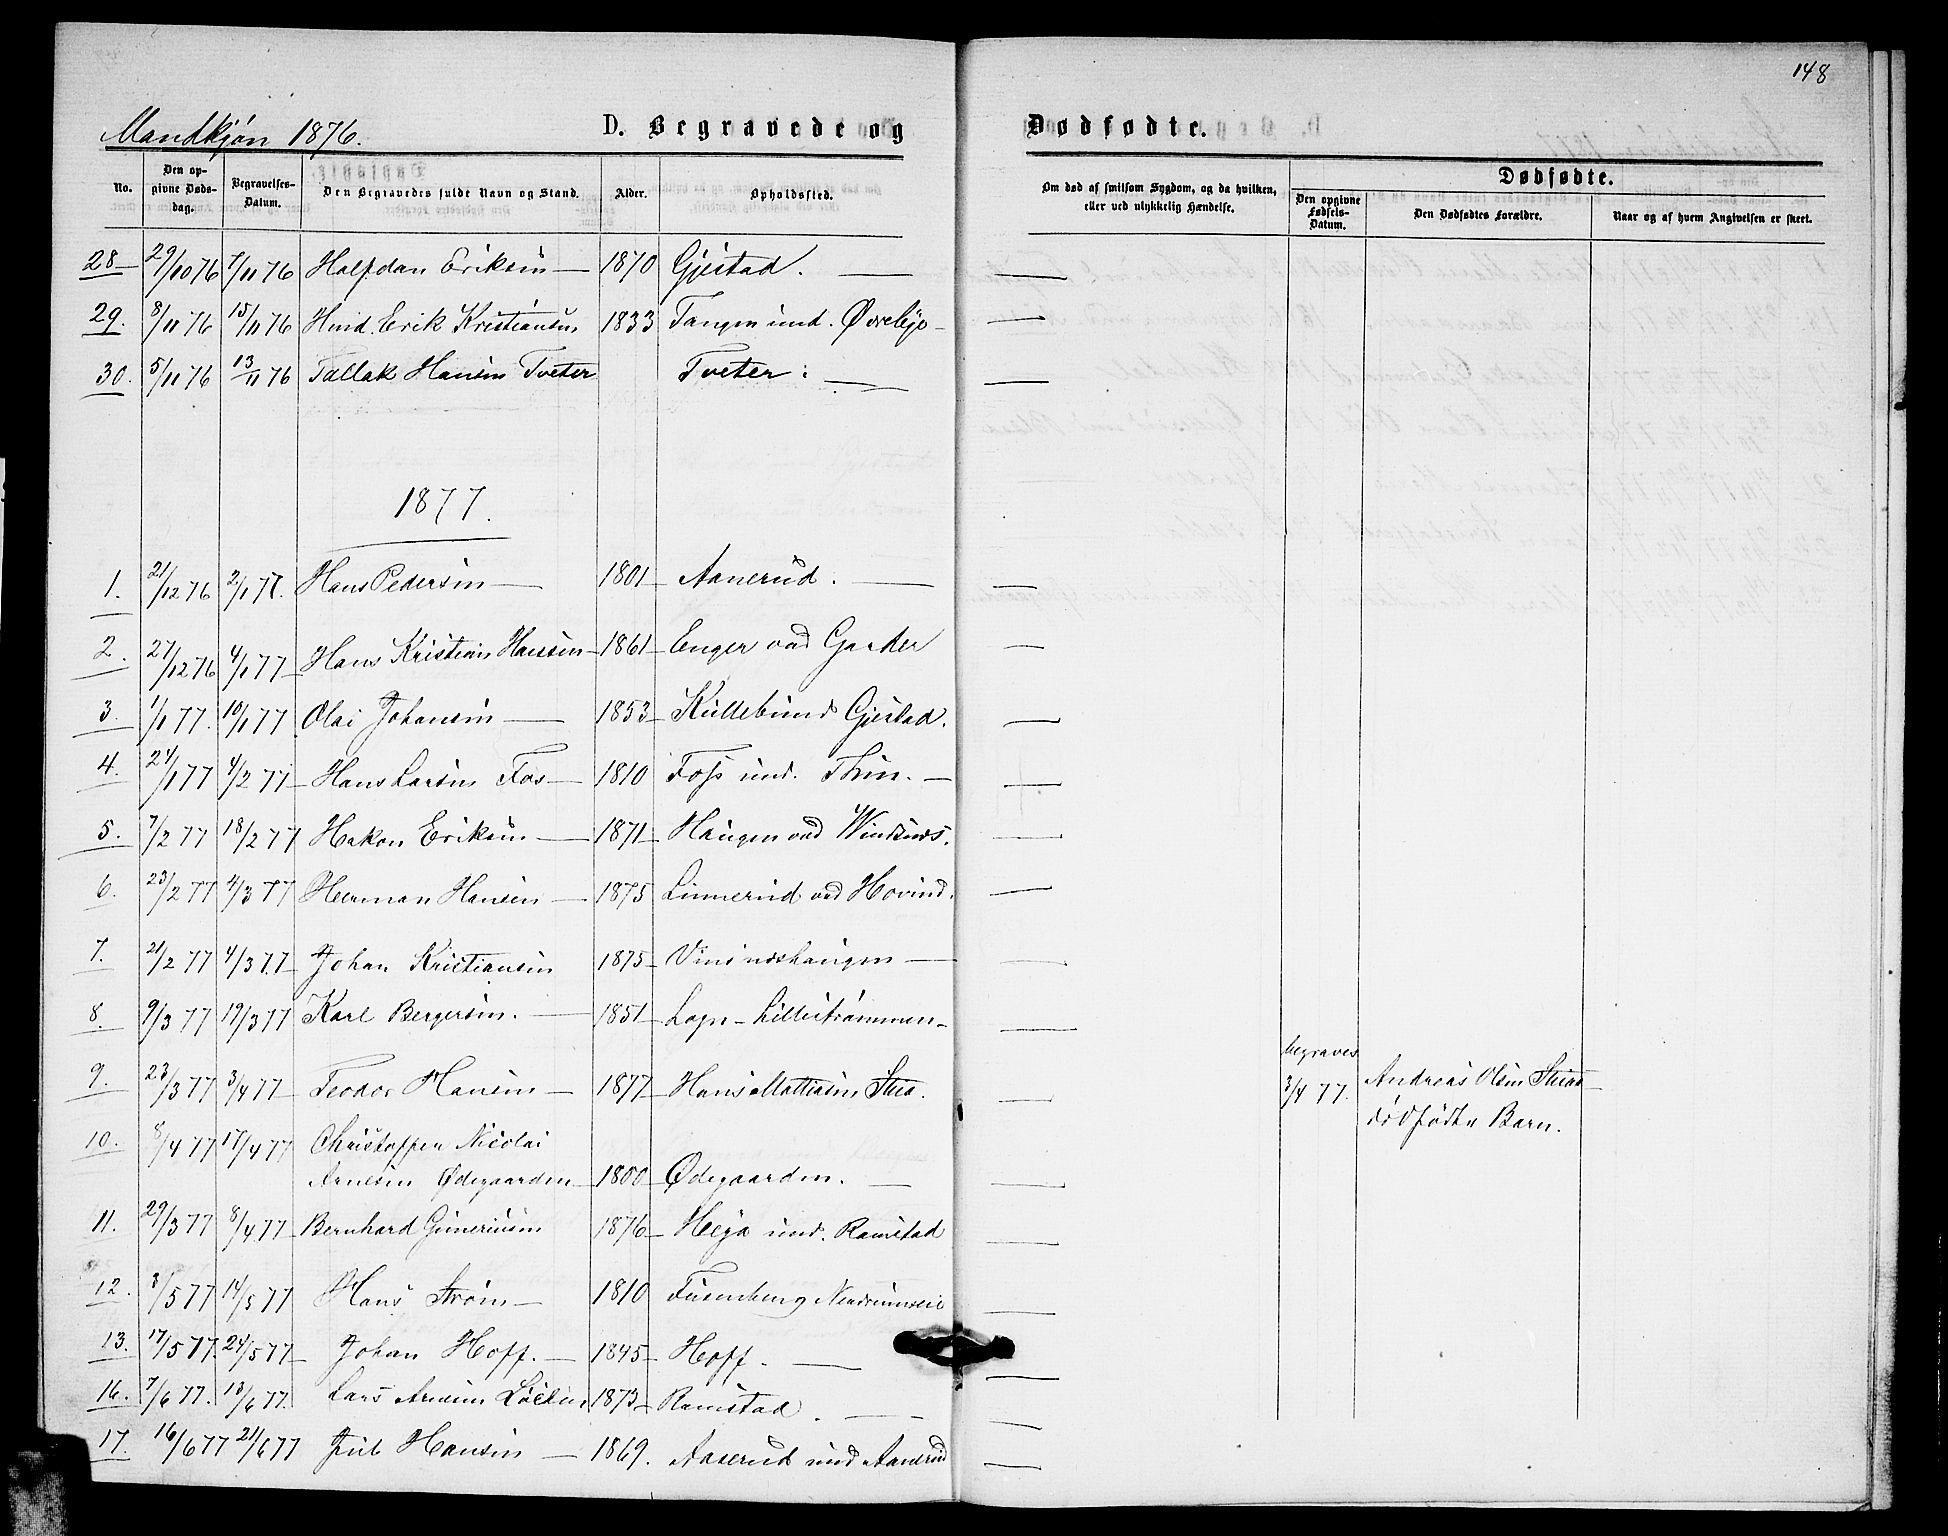 148
Mandkjøn 1876.
D. Begravede og Dødfødte.
No. Den opgivne Dødsdag. Begravelses-Datum. Den Begravedes fulde Navn og Stand. Alder. Opholdssted. Om død af smitsom Sygdom, og da hvilken, eller ved ulykkelig Hændelse. Dødfødte. Den opgivne Fødsels-Datum. Den Dødfødtes Forældre. Naar og af hvem Angivelsen er skeet.
28 29/10 76 7/11 76 Halfdan Eriksen 1870 Gjestad.
29. 8/11 76 15/11 76 Husmd. Erik Kristiansen 1833 Tangen und. Øvrebye
30. 5/11 76 13/11 76 Tallak Hansen Tveter Tveter.
1877.
1. 21/12 76 2/1 77. Hans Pedersen 1801 Aanerud.
2. 27/12 76 4/1 77 Hans Kristian Hansen 1861 Enger ved Garder
3. 1/1 77. 10/1 77 Olai Johansen 1853 Kullebund Gjestad.
4. 24/1 77 4/2 77 Hans Larsen Fos 1810 Foss und. Thun.
5. 7/2 77 18/2 77 Hakon Eriksen 1871 Haugen ved
6. 23/2 77 4/3 77 Herman Hansen 1875 Linnerud ved Hovind.
7. 21/2 77 4/3 77 Johan Kristiansen 1875
8. 9/3 77 19/3 77 Karl Bergersen. 1851 Logn - Lillestrømmen
9. 23/3 77 3/4 77 Teodor Hansen 1877 Hans Mattisen Stia. begraves 3/4 77. Andreas Olsen Stias dødfødte Barn.
10. 8/4 77 17/4 77 Christoffer Nicolai
Arnesen Ødegaarden 1800 Ødegaarden.
11. 29/3 77 8/4 77 Bernhard Guneriusen 1876 Heja und. Ramstad
12. 3/5 77 14/5 77 Hans Strøm 1810
13. 17/5 77. 24/5 77 Johan Hoff. 1845 Hoff.
16. 7/6 77. 13/6 77. Lars Arnesen 1873 Ramstad.
17. 16/6 77 21/6 77 Juel Hansen 1869. Aaserud und Aanerud